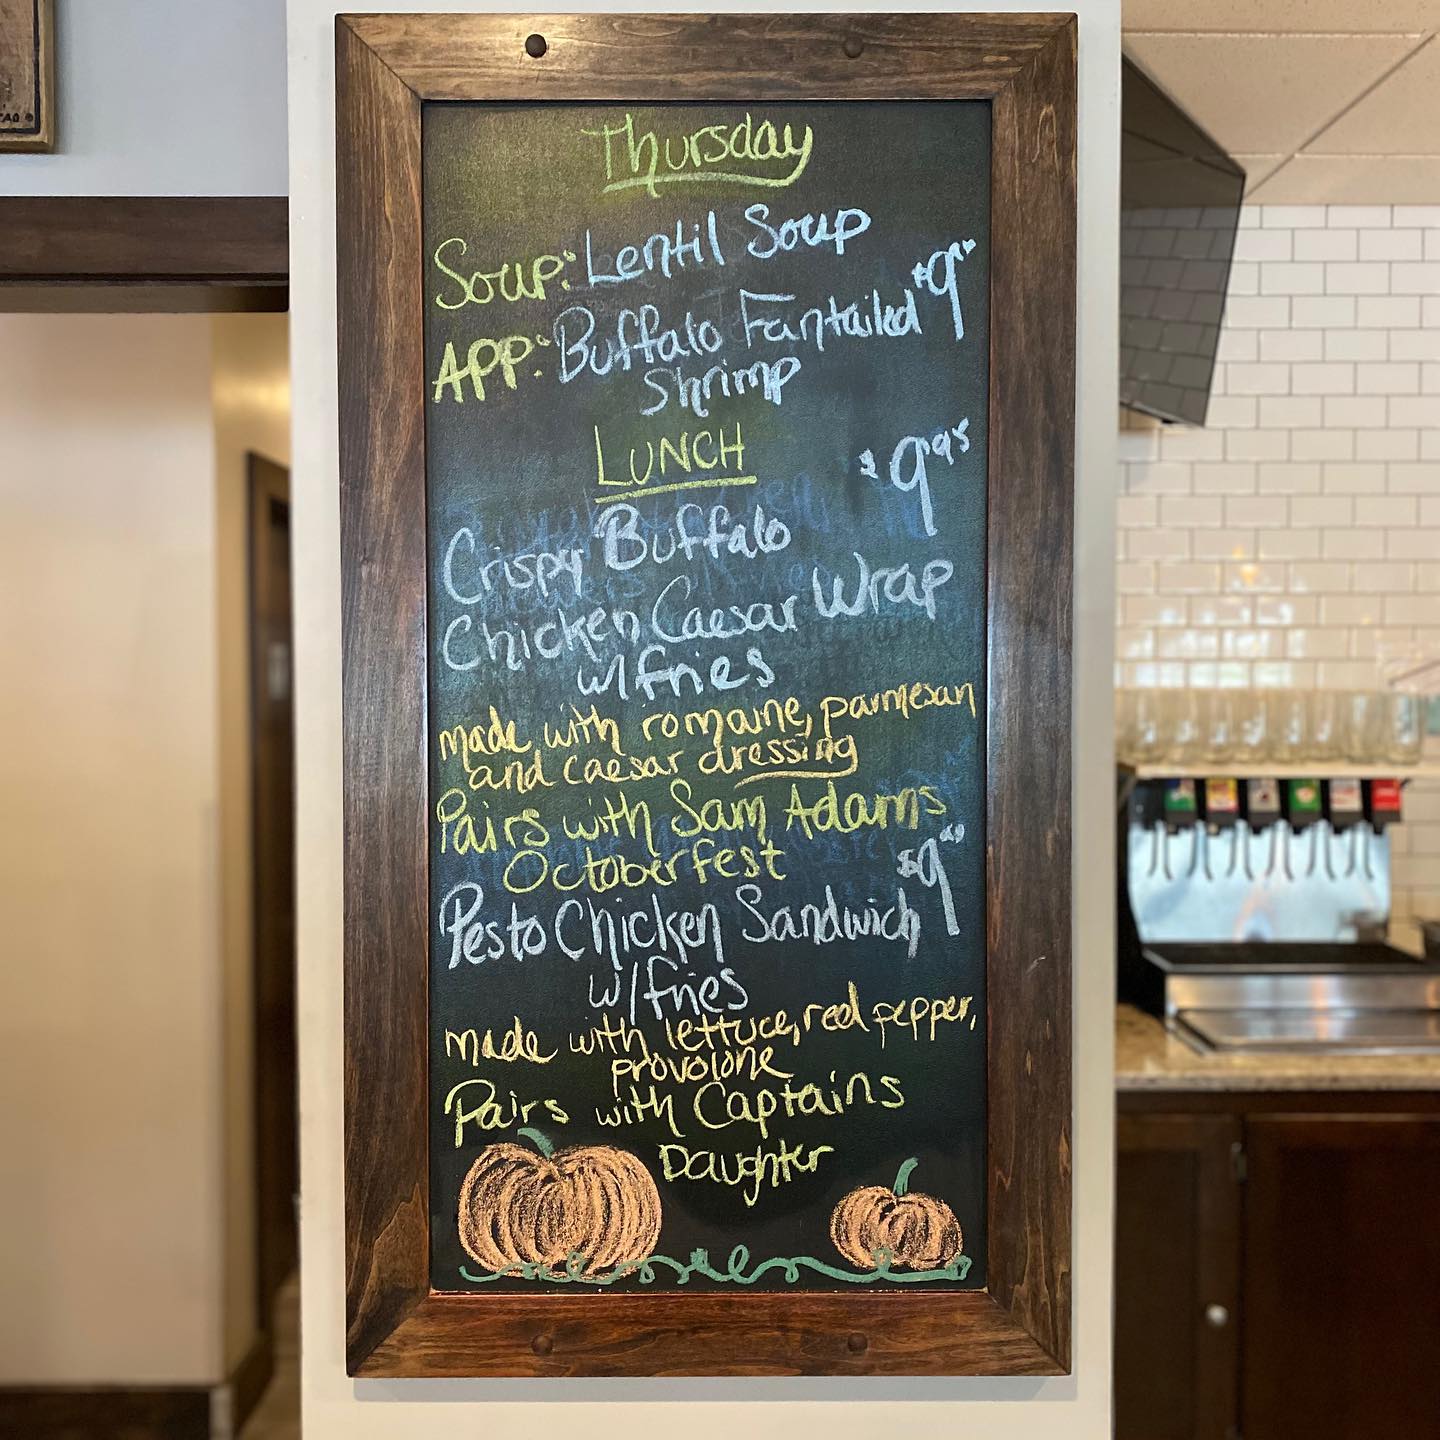 Thursday
Soup: Lentil Soup
App: Buffalo Fantailed $9
Shrimp
LUNCH
$9.95
Crispy Buffalo
Chicken Caesar Wrap
w/fries
made with romaine, parmesan
and caesar dressing
Pairs with Sam Adams
Octoberfest
Pesto Chicken Sandwich $9
w/fries
made with lettuce, red pepper,
provolone
Pairs with Captains
Daughter